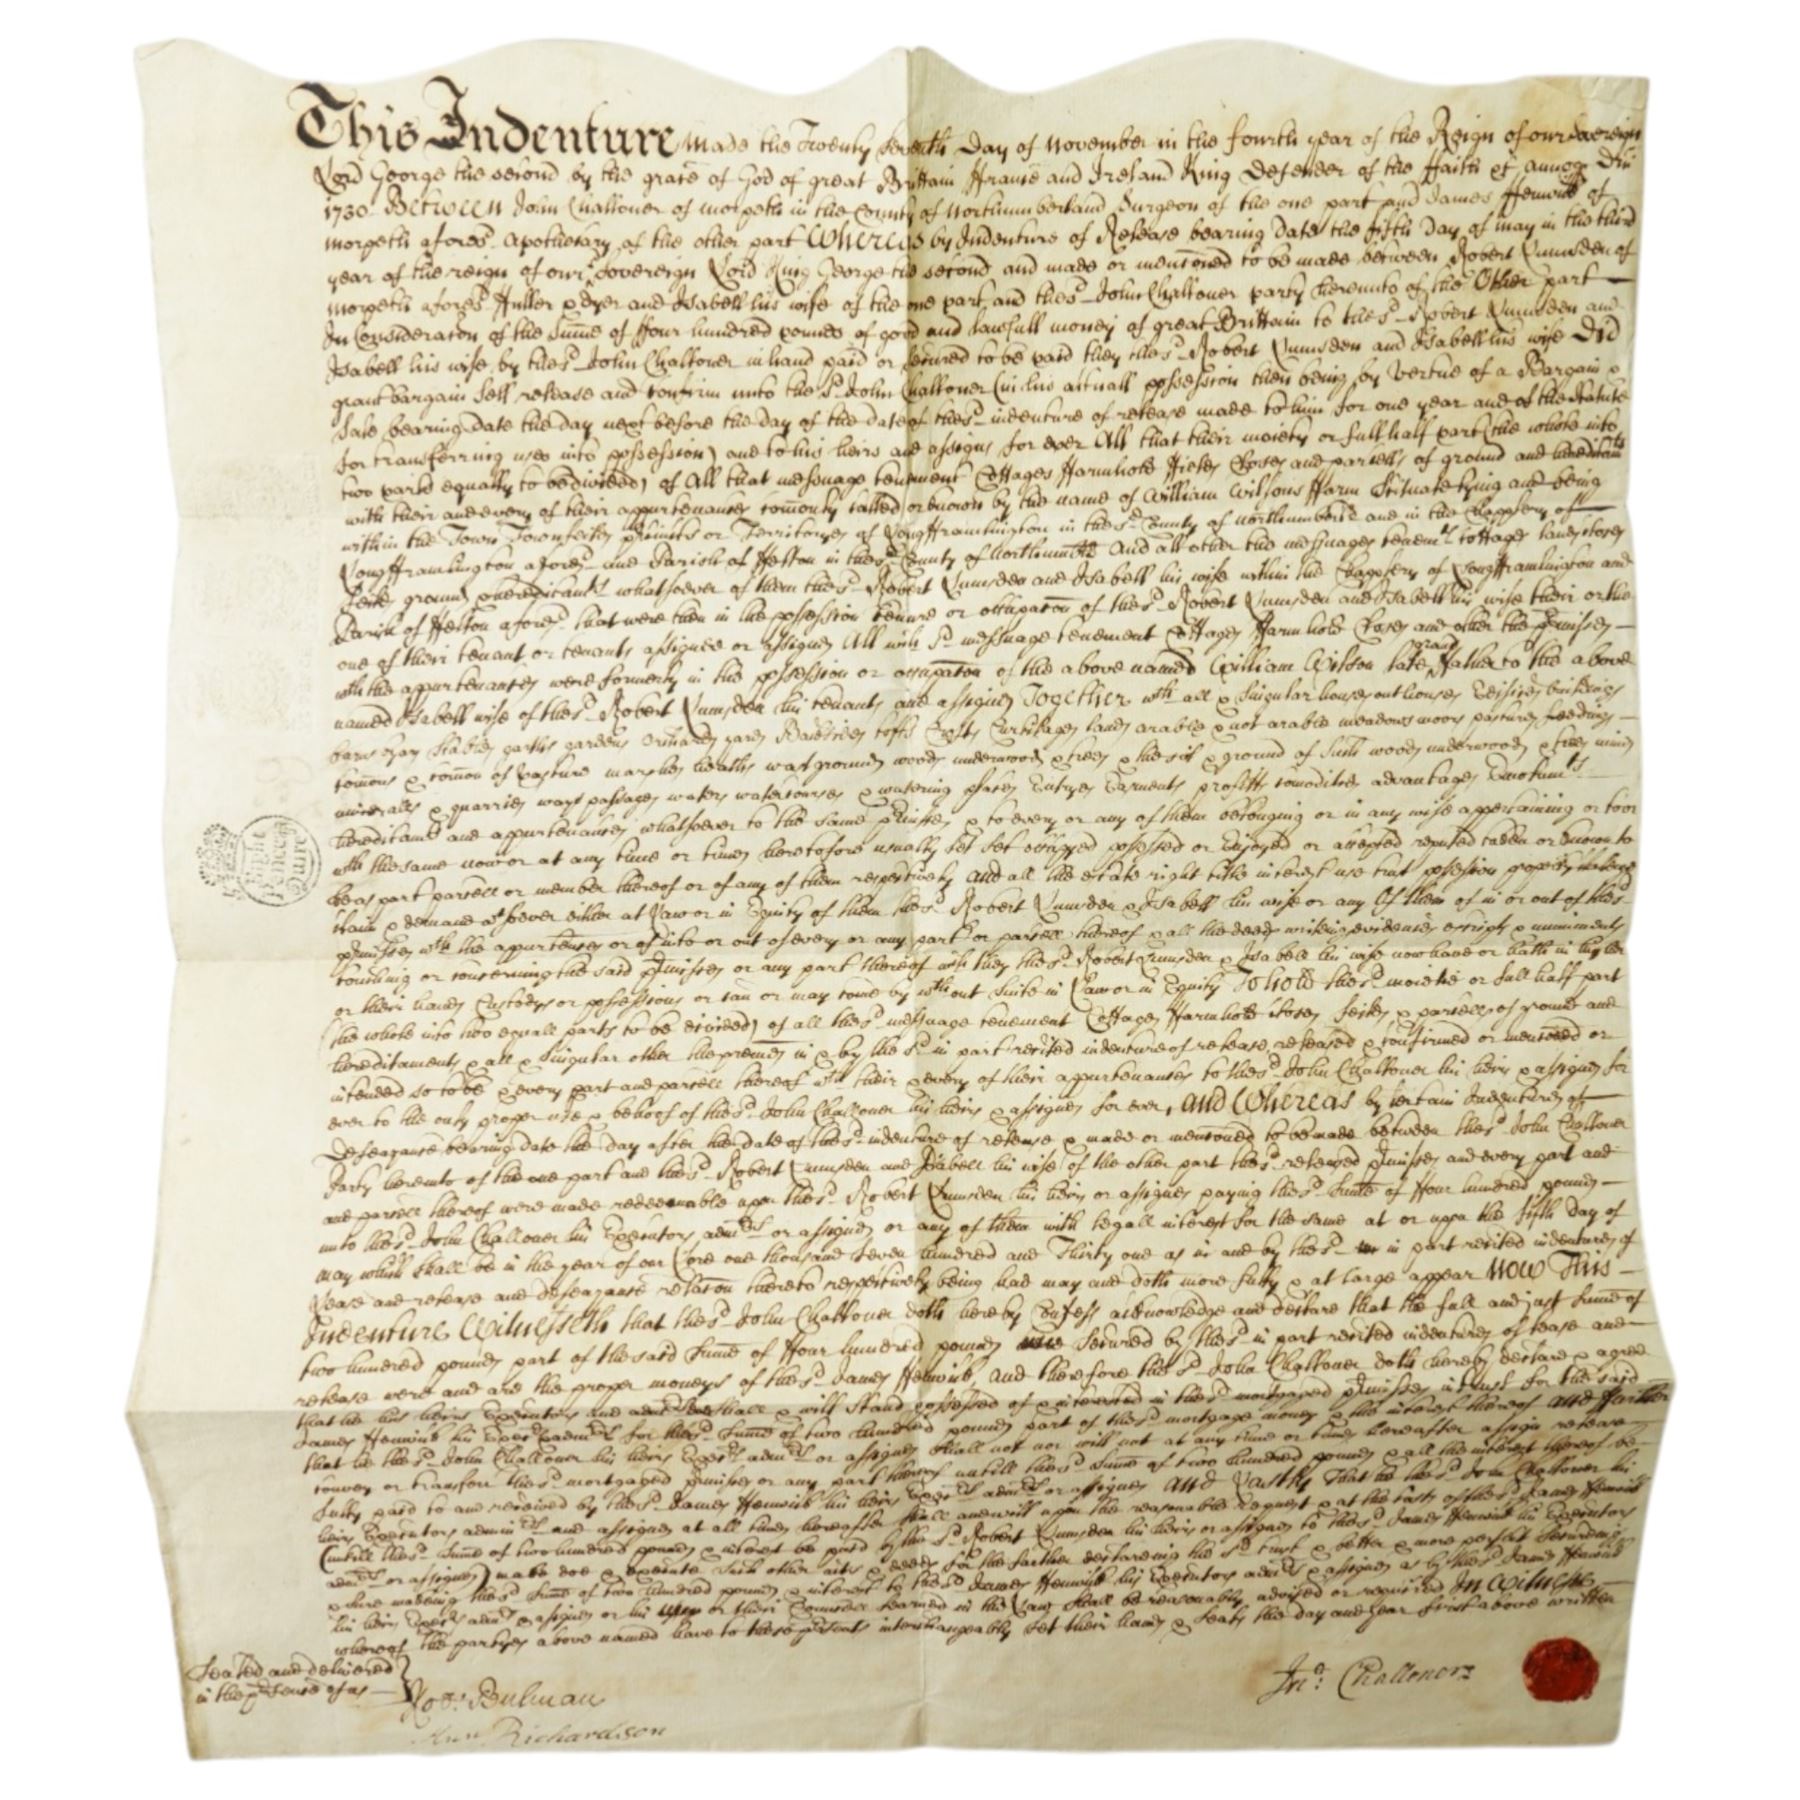 This Indenture Made the Twenty Seventh Day of November in the fourth year of the Reign of our Sovereign
Lord George the second by the grace of God of great Brittain ffrance and Ireland King Defender of the ffaith &c annoq Dni
1730 Between John Challoner of Morpeth in the County of Northumberland Surgeon of the one part and James ffenwick of
Morpeth aforesd Apothecary of the other part Whereas by Indenture of Release bearing Date the fifth Day of May in the third
year of the reign of our Sovereign Lord King George the second and made or mentoned to be made between Robert Lumsden of
Morpeth aforesd ffuller & Dyer and Isabell his wife of the one part and the sd John Challoner party hereunto of the Other part
In Consideraton of the Sume of ffour hundred pounds of good and lawfull money of great Brittain to the sd Robert Lumsden and
Isabell his wife by the sd John Challoner in hand paid or secured to be paid they the sd Robert Lumsden and Isabell his wife Did
grant bargain sell release and confirm unto the sd John Challoner (in his actuall possession then being by vertue of a Bargain &
Sale bearing Date the day next before the day of the date of the sd indenture of release made to him for one year and of the Statute
for transferring uses into possession) and to his heirs and assigns for ever All that their moiety or full half part (the whole into
two parts equally to be divided) of All that messuage tenement Cottages ffarmhold ffields Closes and parcells of ground and hereditamts
with their and every of their appurtenances comonly called or known by the name of William Wilsons ffarm Scituate lying and being
within the Town Townfeilds precincts or Territoryes of Longfframlington in the sd County of Northumberld and in the Chappelry of
Longfframlington aforesd and Parish of ffelton in the sd County of Northumbld And all other the messuages tenemts cottages lands closes
feilds grounds & hereditamts whatsoever of them the sd Robert Lumsden and Isabell his wife within the Chappelry of Longfframlington and
Parish of ffelton aforesd that were then in the possession tenure or occupaton of the sd Robert Lumsden and Isabell his wife their or the
one of their tenant or tenants assignee or assignes All wch sd messuage tenement Cottages ffarmhold Closes and other the pmisses
wth the appurtenances were formerly in the possession or occupaton of the above named William Wilson late grand ffather to the above
named Isabell wife of the sd Robert Lumsden his tenants and assignes Together wth all & Singular houses outhouses Edifices buildings
barns byars stables garths gardens orchards yards Backsides tofts Crofts Curtilages lands arable & not arable meadows moors pastures feedings
comons & comon of Pasture marshes heaths wast grounds woods underwoods & trees & the soil & ground of such woods underwoods & trees mines
mineralls & quarries ways passages waters watercourses & watering places Entryes Easments profitts comodities advantages Emolumts
hereditamts and appurtenances whatsoever to the same pmisses & to every or any of them belonging or in any wise appertaining or
wth the same now or at any time or times heretofore usually let set occupyed possessed or Enjoyed or accepted reputed taken or known to
be as part parcell or member thereof or of any of them respectively And all the estate right title interest use trust possession property
claim & demand wtsoever either at Law or in Equity of them the sd Robert Lumsden & Isabell his wife or any Of them of in or out of the sd
pmisses wth the appurtences or of into or out of every or any part or parcell thereof & all the deeds writings evidences escripts & muniments
touching or concerning the said pmisses or any part thereof wch they the sd Robert Lumsden & Isabell his wife now have or hath in his her
or their hands Custodys or possessions or can or may come by wthout Suite in Law or in Equity To hold the sd moietie or full half part
(the whole into two equall parts to be divided) of all the sd messuage tenement Cottages ffarmhold closes feilds & parcells of ground and
hereditaments & all & Singular other the premes in & by the sd in part recited indenture of release released & confirmed or mentoned or
intended so to be & every part and parcell thereof wth their & every of their appurtenances to the sd John Challoner his heirs & assignes for
ever to the only proper use & behoof of the sd John Challoner his heirs & assignes for ever, And Whereas by certain Indentures of
Defeazance bearing date the day after the date of the sd indenture of release & made or mentoned to be made between the sd John Challoner
Party hereunto of the one part and the sd Robert Lumsden and Isabell his wife of the other part the sd released pmisses and every part and
and parcell thereof were made redeemable upon the sd Robert Lumsden his heirs or assignes paying the sd Sume of ffour hundred pounds
unto the sd John Challoner his Executors admrs or assignes or any of them with legall interest for the same at or uppn the fifth day of
May which shall be in the year of our Lord one thousand Seven hundred and Thirty one as in and by the sd in part recited indentures of
Lease and release and Defeazance relaton thereto respectively being had may and doth more fully & at large appear Now This
Indenture Witnesseth that the sd John Challoner doth hereby Confess acknowledge and declare that the full and just Sume of
two hundred pounds part of the said Sume of ffour hundred pounds secured by the sd in part recited indentures of lease and
release were and are the proper moneys of the sd James ffenwick, and therefore the sd John Challoner doth hereby declare & agree
that he his heirs Executors and shall & will stand possessed of & interested in the sd mortgaged pmisses in trust for the said
James ffenwick his Execrs & admrs for the sd Sume of two hundred pounds part of the sd mortgage money & the interest thereof And ffurther
that he the sd John Challoner his heirs Execrs admrs or assignes shall not nor will not at any time or times hereafter assign release
convey or transferr the sd mortgaged pmisses or any part thereof untill the sd Sume of two hundred pounds & all the interest thereof be
fully paid to and received by the sd James ffenwick his heirs Execrs admrs or assignes And Lastly That he the sd John Challoner his
heirs Executors adminrs and assignes at all times hereafter shall and will upon the reasonable request & at the costs of the sd James ffenwick
(untill the sd Sume of two hundred pounds & interest be paid by the sd Robert Lumsden his heirs or assignes to the sd James ffenwick his Executors
admrs or assignes) make doe & execute such other acts & deeds for the further declareing the sd trust & better & more perfect Secureing
& Sure making the sd Sume of two hundred pounds & interest to the sd James ffenwick his Executors admrs & assignes as by the sd James ffenwick
his heirs Execrs admrs & assignes or his or their Councill learned in the Law shall be reasonably advised or required In Witness
whereof the partyes above named have to these psents interchangeably set their hands & seals the day and year first above written
Sealed and delivered
in the psence of us
Robt: Bulman
Ann Richardson
Jno: Challoner